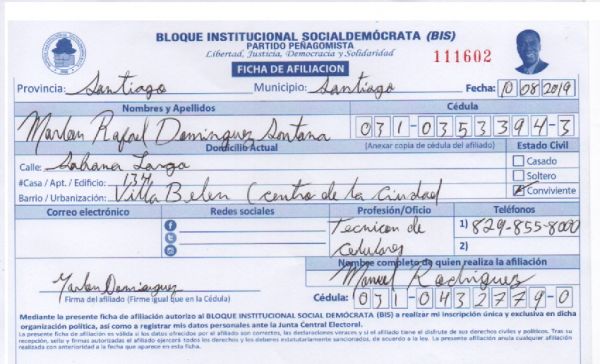 BLOQUE INSTITUCIONAL SOCIALDEMÓCRATA (BIS)
PARTIDO PEÑAGOMISTA
Libertad, Justicia, Democracia y Solidaridad
111602
FICHA DE AFILIACION
Provincia: Santiago Municipio: Santiago Fecha: 10 08 2019
Nombres y Apellidos Cédula
Marlon Rafael Dominguez Santana 031-0353394-3
Domicilio Actual (Anexar copia de cédula del afiliado) Estado Civil
Calle: Sabana Larga Casado
#Casa / Apt. / Edificio: 134 Soltero
Barrio / Urbanización: Villa Belen (centro de la Ciudad Conviviente
Correo electrónico Redes sociales Profesión/Oficio Teléfonos
Tecnicon de celulares 1) 829-855-8000
2)
Nombre completo de quien realiza la afiliación
Marlon Dominguez Manuel Rodriguez
Firma del afiliado (Firme igual que en la Cédula) Cédula: 031-0432779-0
Mediante la presente ficha de afiliación autorizo al BLOQUE INSTITUCIONAL SOCIAL DEMÓCRATA (BIS) a realizar mi inscripción única y exclusiva en dicha
organización política, así como a registrar mis datos personales ante la Junta Central Electoral.
La presente ficha de afiliación es válida si los datos ofrecidos por el afiliado son correctos, las declaraciones veraces y si el afiliado tiene el disfrute de sus derechos civiles y políticos. Tras su
recepción, sello y firmas autorizadas el afiliado ejercerá todos los derechos y los deberes estatutariamente sancionados, de acuerdo a la ley. La presente afiliación anula cualquier afiliación
realizada con anterioridad a la fecha que aparece en esta ficha.